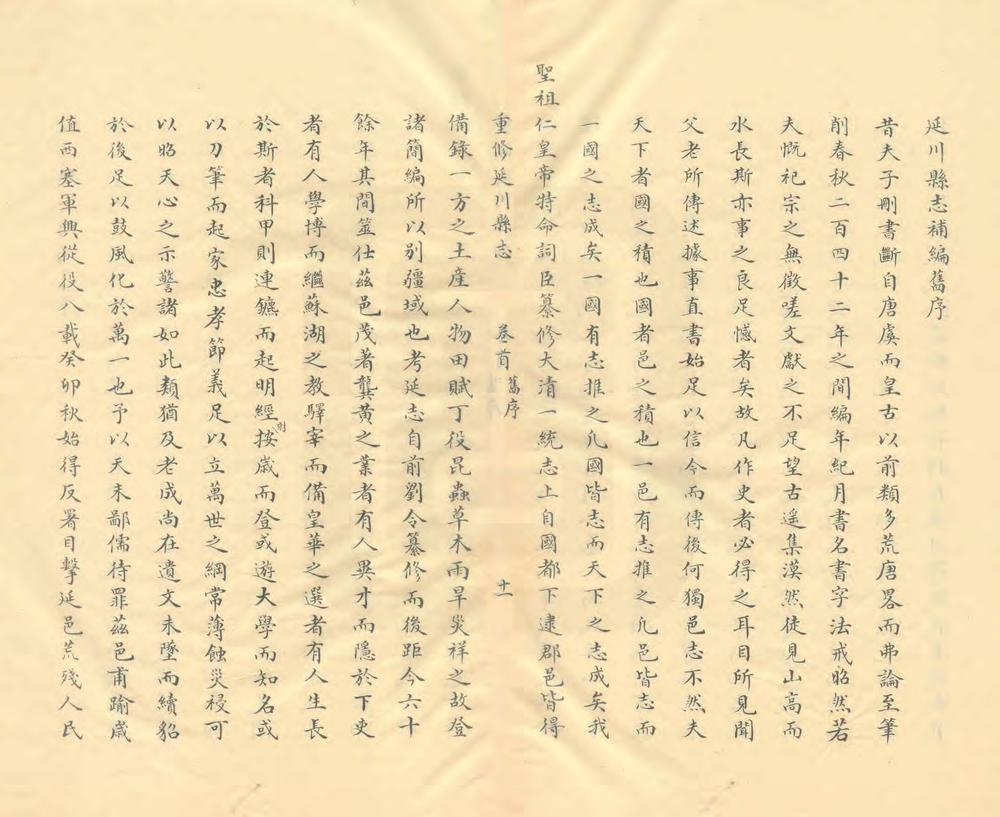 延川縣志補編舊序
昔夫子刪書斷自唐虞而皇古以前類多荒唐畧而弗論至筆
削春秋二百四十二年之間編年紀月書名書字法戒昭然若
夫慨祀宗之無徵嗟文獻之不足望古遥集漠然徒見山高而
水長斯亦事之良足憾者矣故凡作史者必得之耳目所見聞
父老所傳述據事直書始足以信今而傳後何獨邑志不然夫
天下者國之積也國者邑之積也一邑有志推之凢邑皆志而
一國之志成矣一國有志推之凢國皆志而天下之志成矣我
聖祖仁皇帝特命詞臣纂修大清一統志上自國都下逮郡邑皆得
重修延川縣志 卷首 舊序 十一
備錄一方之土産人物田賦丁役昆蟲草木雨旱災祥之故登
諸簡編所以別疆域也考延志自前劉令纂修而後距今六十
餘年其間筮仕茲邑茂著龔黃之業者有人異才而隱於下吏
者有人學博而繼蘇湖之教驛宰而備皇華之選者有人生長
於斯者科甲則連鑣而起明經則按歲而登或遊大學而知名或
以刀筆而起家忠孝節義足以立萬世之綱常薄蝕災祲可
以昭天心之示警諸如此類猶及老成尚在遺文未墜而續貂
於後足以鼓風化於萬一也予以天末鄙儒待罪茲邑甫踰歲
值西塞軍興從役八載癸卯秋始得反署目擊延邑荒殘人民